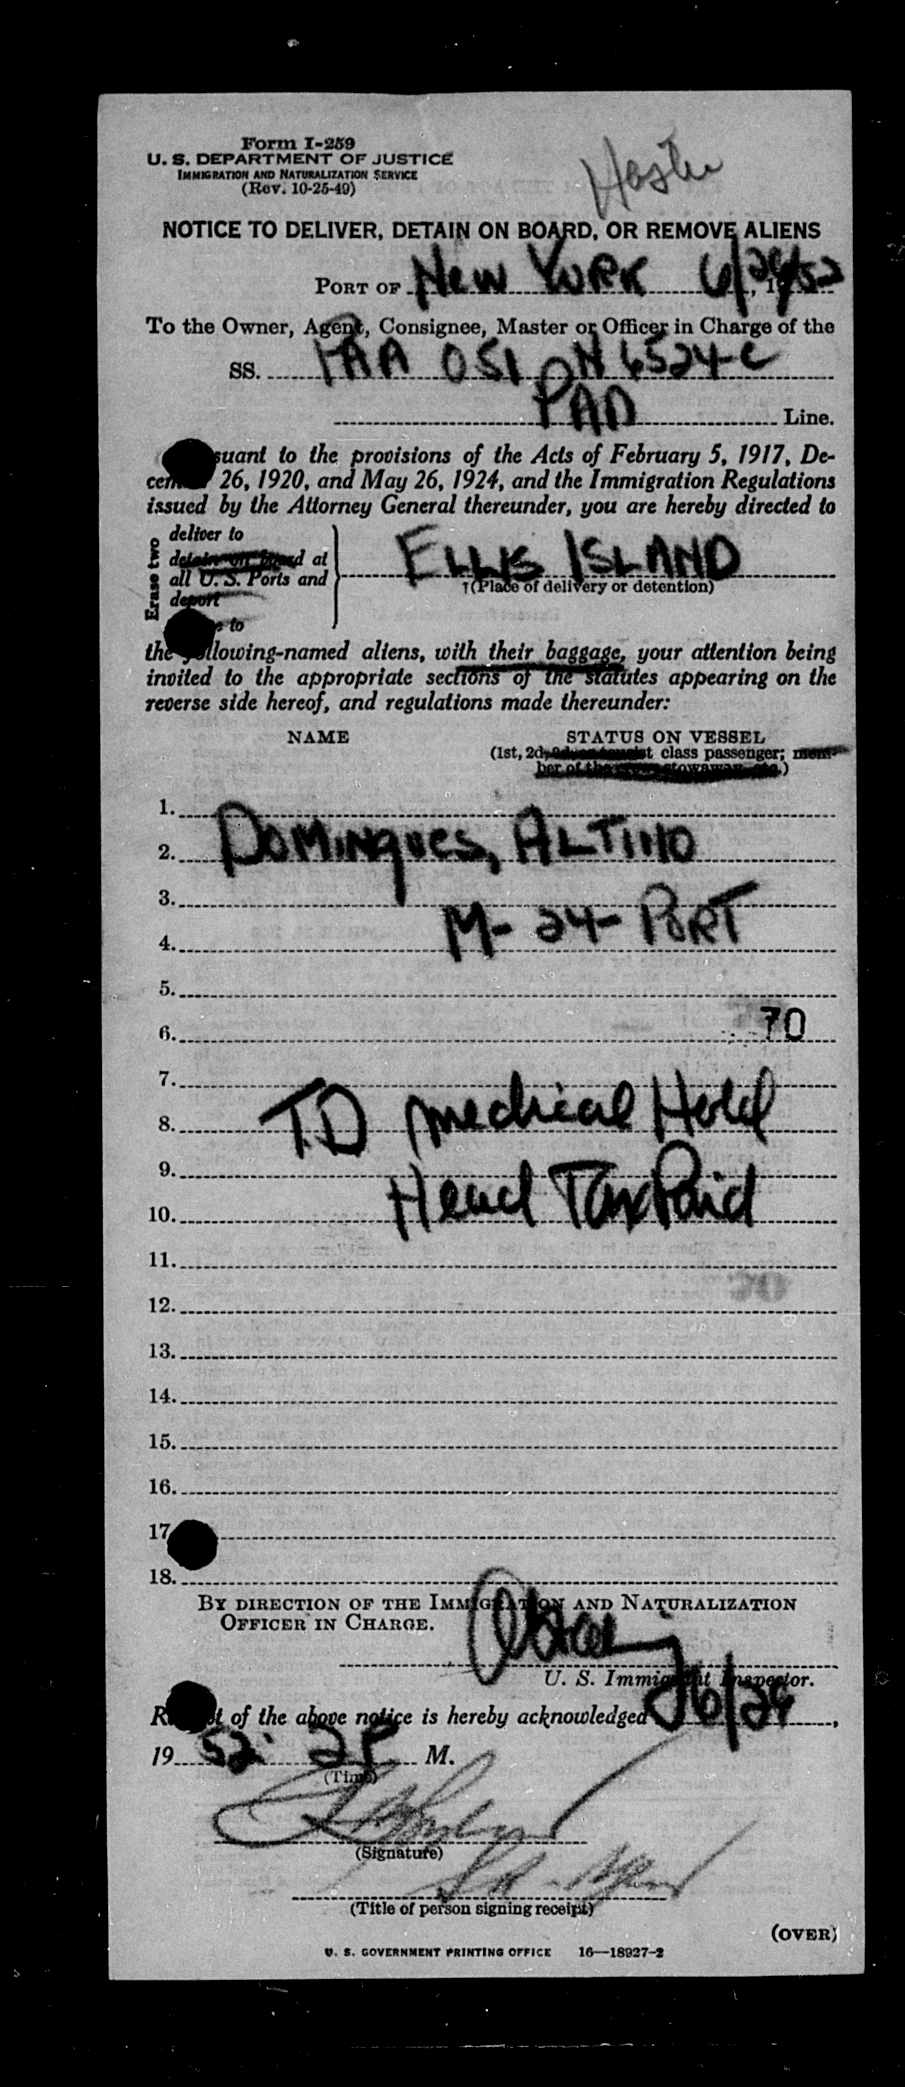 Form I-259
U. S. DEPARTMENT OF JUSTICE
IMMIGRATION AND NATURALIZATION SERVICE
(Rev. 10-25-49)
NOTICE TO DELIVER, DETAIN ON BOARD, OR REMOVE ALIENS
PORT OF New York 6/26/52, 19
To the Owner, Agent, Consignee, Master or Officer in Charge of the
SS. PAA 051 N 6524-C
PAD Line.
suant to the provisions of the Acts of February 5, 1917, De-
cem 26, 1920, and May 26, 1924, and the Immigration Regulations
issued by the Attorney General thereunder, you are hereby directed to
Erase two
deliver to
detain on board at
all U. S. Ports and
deport
to
ELLIS ISLAND
(Place of delivery or detention)
the following-named aliens, with their baggage, your attention being
invited to the appropriate sections of the statutes appearing on the
reverse side hereof, and regulations made thereunder:
NAME STATUS ON VESSEL
(1st, 2d, class passenger; mem-
ber of the crew, stowaway, etc.)
1.
2. DOMINGUES, ALTINO
3.
4. M-24-PORT
5.
6. 70
7.
8. T.D medical Hold
9.
10. Head Tax Paid
11.
12.
13.
14.
15.
16.
17
18.
BY DIRECTION OF THE IMMIGRATION AND NATURALIZATION
OFFICER IN CHARGE.
U. S. Immigrant Inspector.
R t of the above notice is hereby acknowledged 6/26,
19 52 2P M.
(Time)
(Signature)
(Title of person signing receipt)
(OVER)
U. S. GOVERNMENT PRINTING OFFICE 16—18927-2